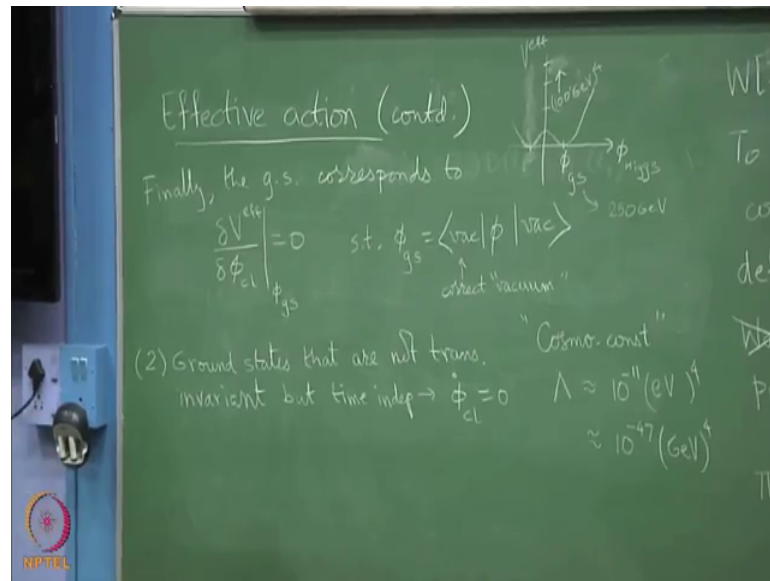 Effective action (contd.)
V^eff
(100 GeV)^4
ϕ_Higgs
ϕ_gs
250 GeV
Finally, the g.s. corresponds to
δV^eff/δϕ_cl |_ϕ_gs = 0 s.t. ϕ_gs = ⟨vac|ϕ|vac⟩
correct "vacuum"
(2) Ground states that are not trans.
invariant but time indep → ϕ̇_cl = 0
"Cosmo. const"
Λ ≈ 10^-11 (eV)^4
≈ 10^-47 (GeV)^4
W[
To
de
NPTEL